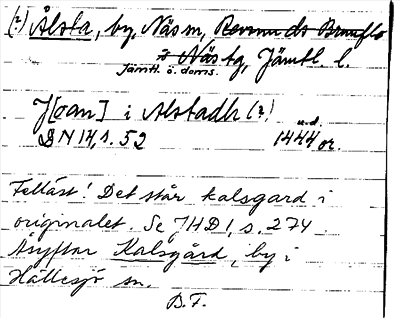 (?) Ålsta, by, Näs sn, Revsunds Brunflo
o Näs tg, Jämtl. l.
Jämtl. ö. doms.
J[oan] i Alstadh (?)
u.d.
DN 14, s. 52 1444 or.
Felläst! Det står kalsgard i
originalet. Se JHD I, s. 274.
Åsyftar Kalsgård, by i
Hällesjö sn.
D.F.